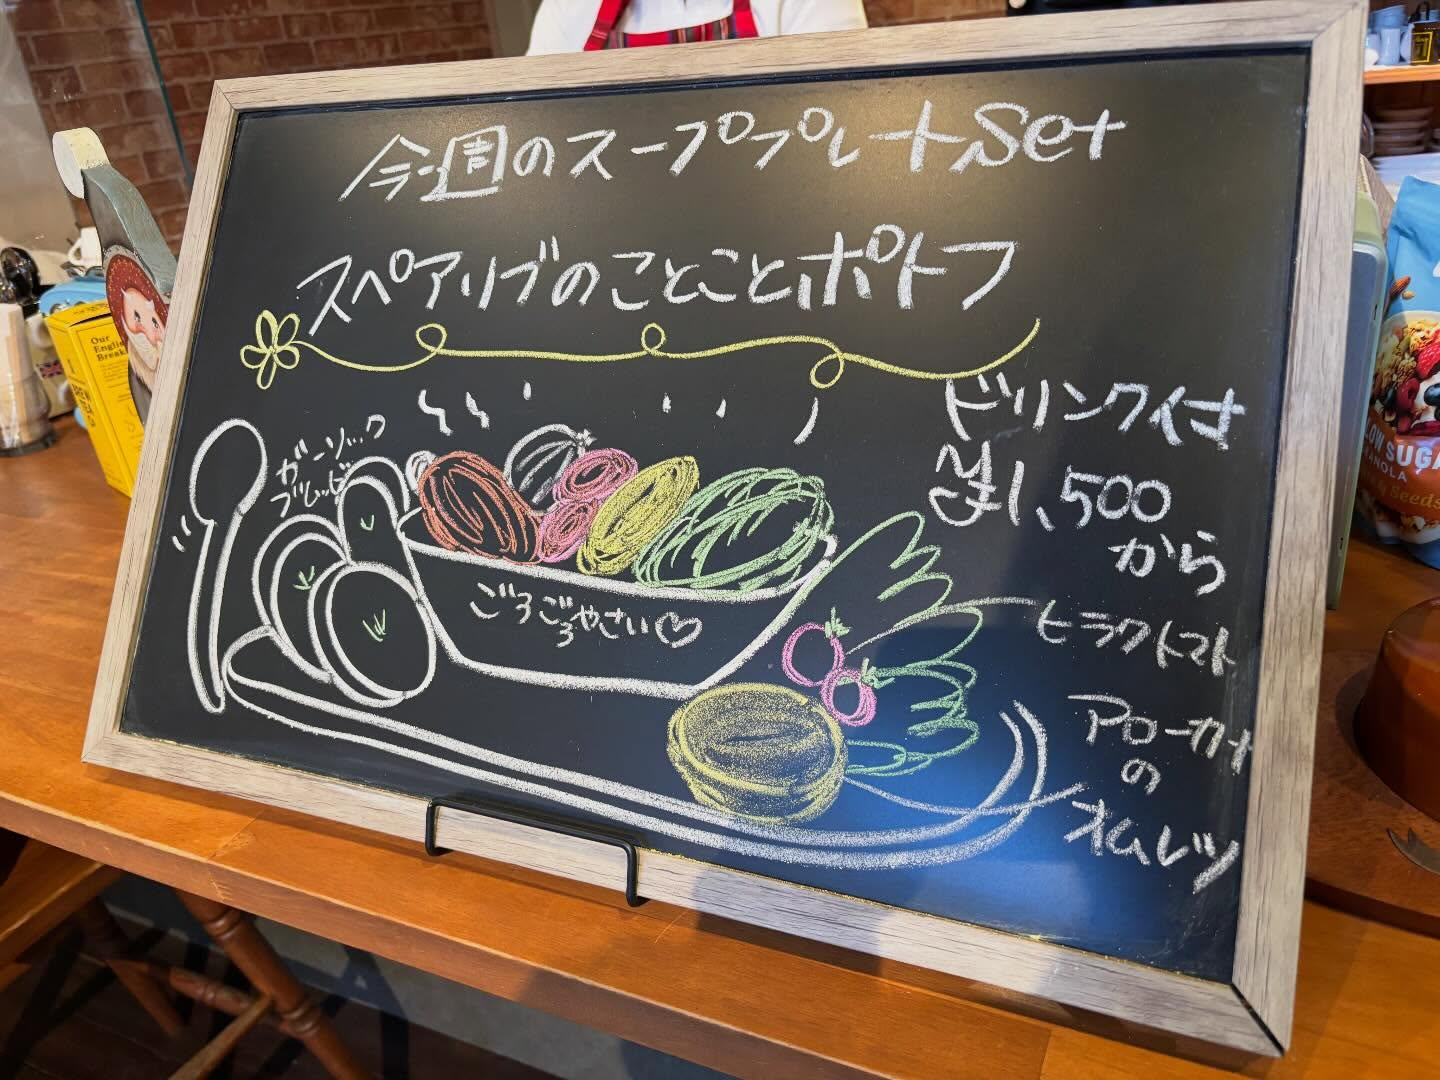 今週のスーププレートSet
スペアリブのことことポトフ
ドリンク付き
¥1,500
から
ガーリック
ブレッド
ごろごろやさい♡
ヒラクトマト
アローカナ
の
オムレツ
Our
English
Break
LOW SUGA
GRANOLA
Seeds